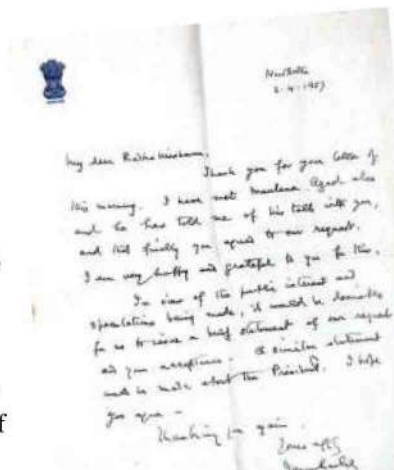 New Delhi
2-4-1957
My dear Radhakrishnan,
Thank you for your letter of
this morning. I have met Maulana Azad also
and he has told me of his talk with you,
and that finally you agreed to our request.
I am very happy and grateful to you for this.
In view of the public interest and
speculations being made, it would be desirable
for us to issue a brief statement of our request
and your acceptance. A similar statement
will be made about the President. I hope
you agree –
Thanking you again
Yours
f